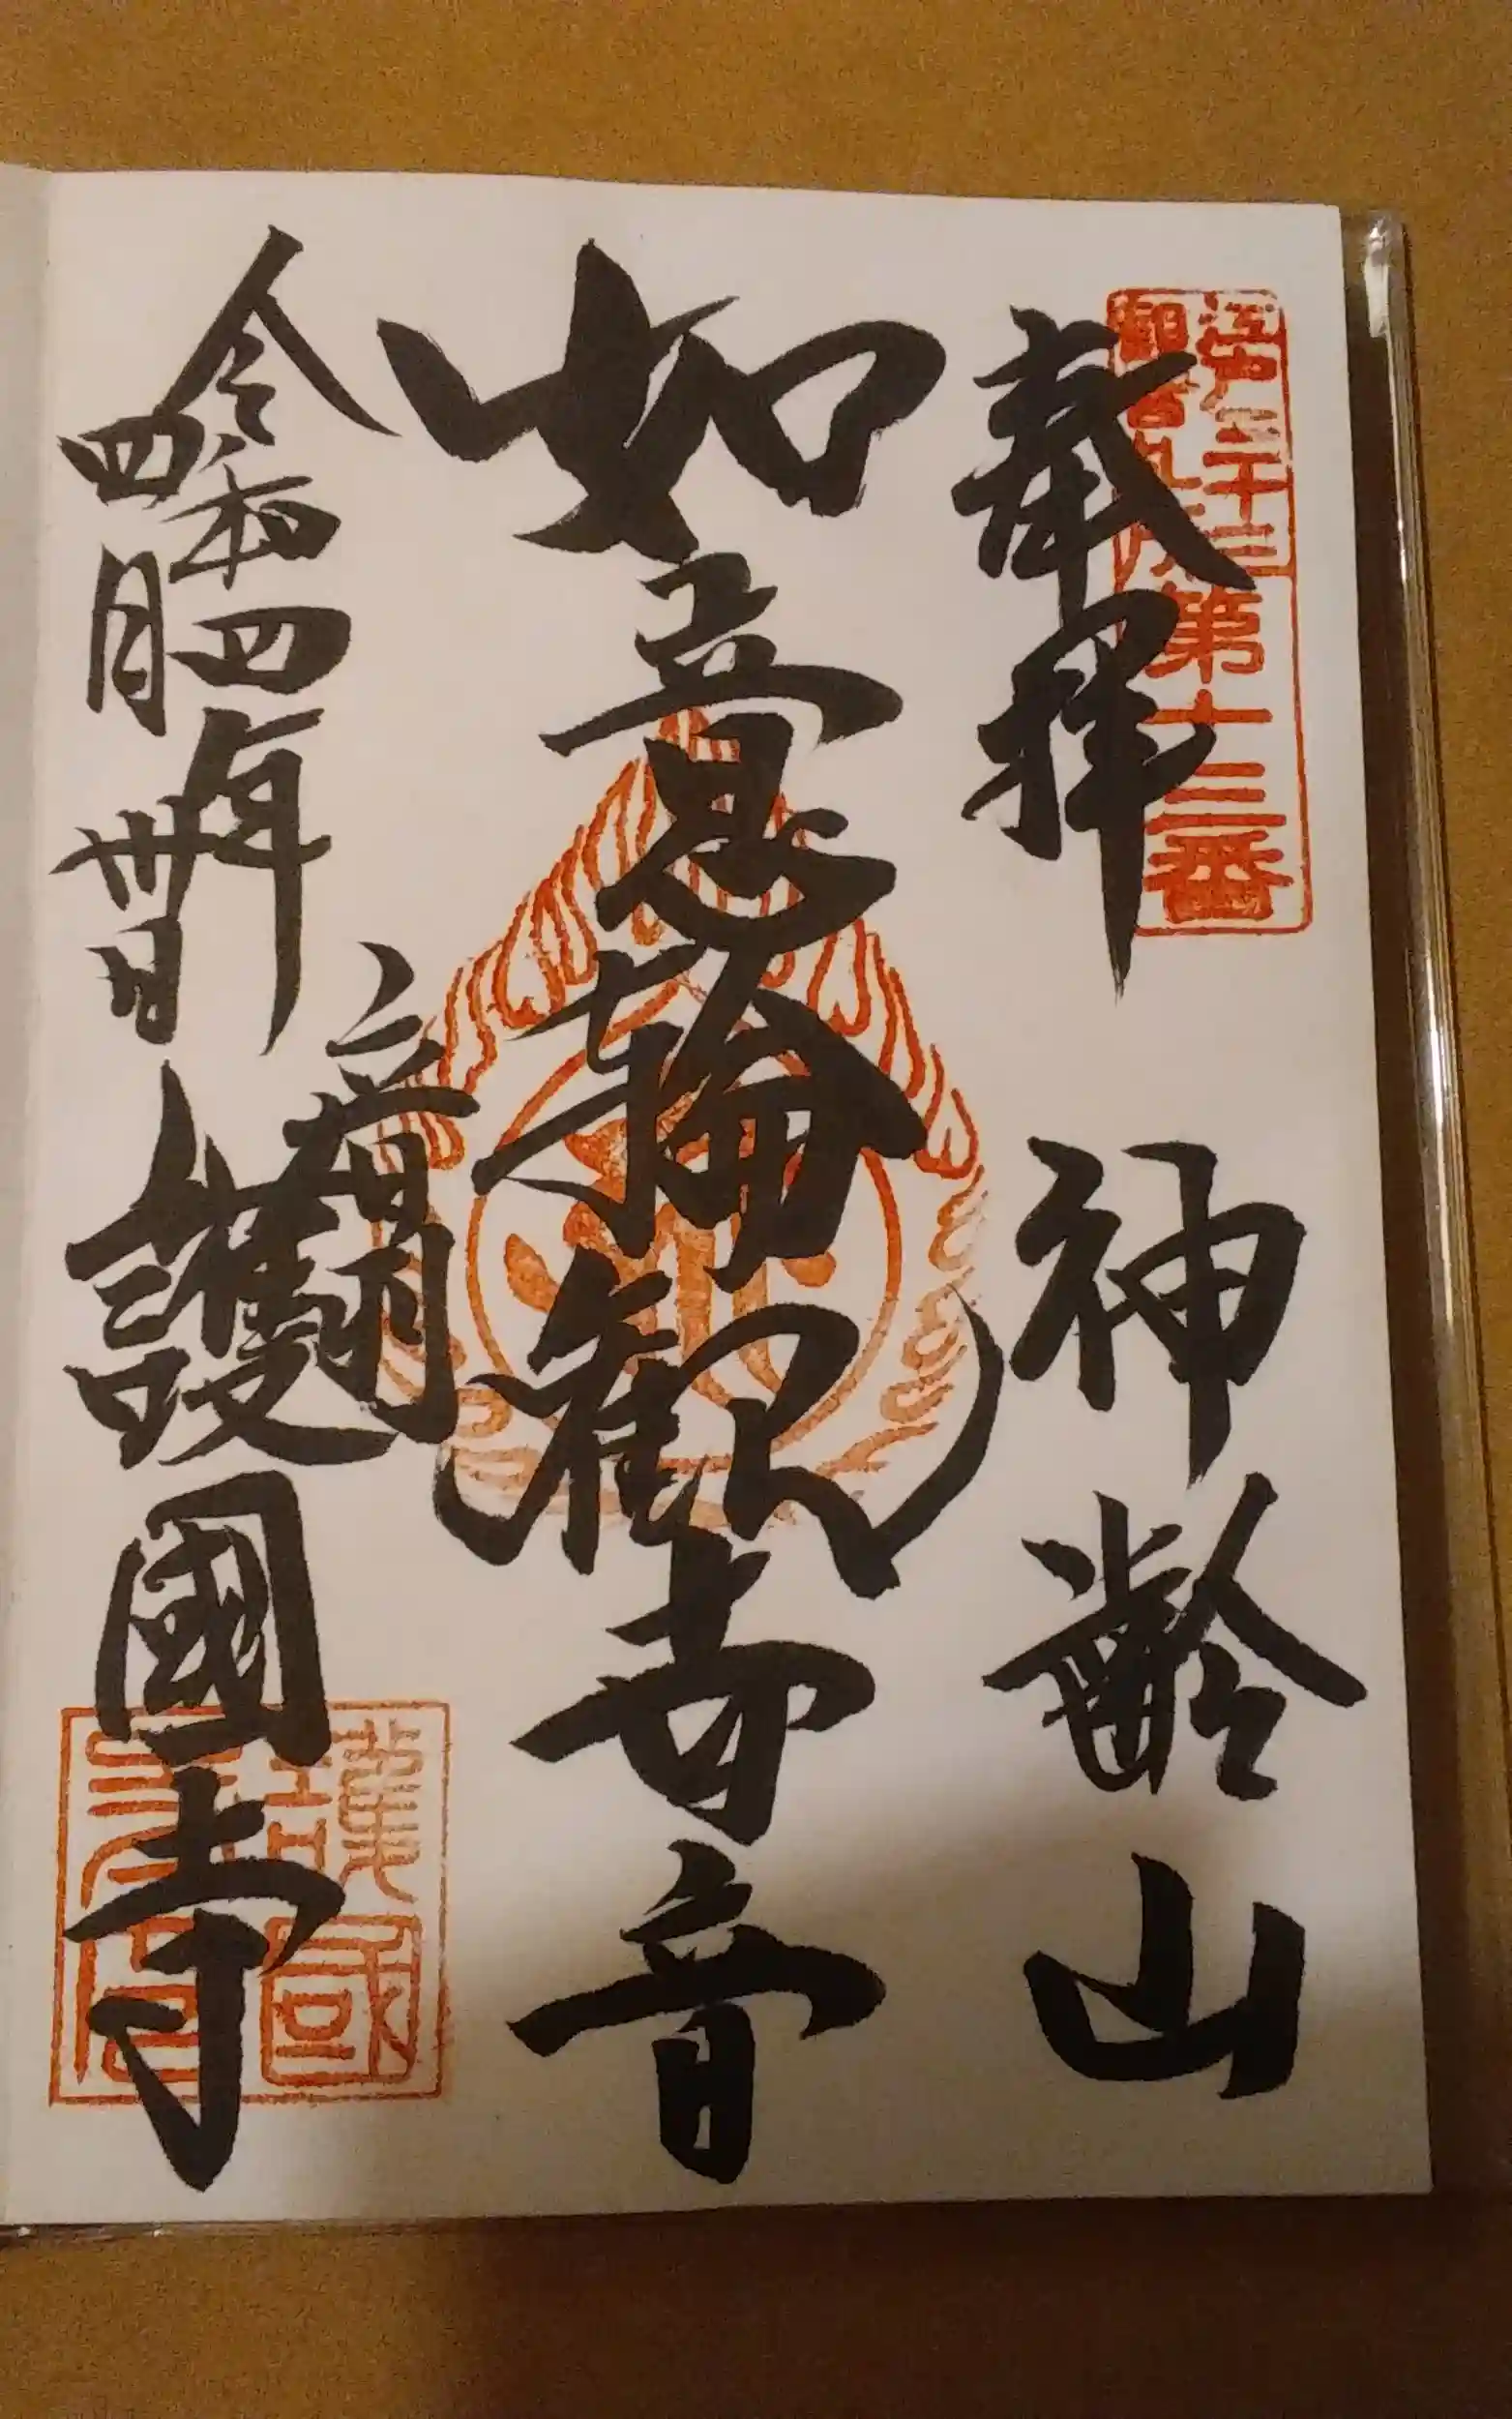 江戸三十三
観音札所
第十三番
奉拝
神齢山
如意輪観世音
令和四年
四月卅日
音羽
護國寺
護國
寺印